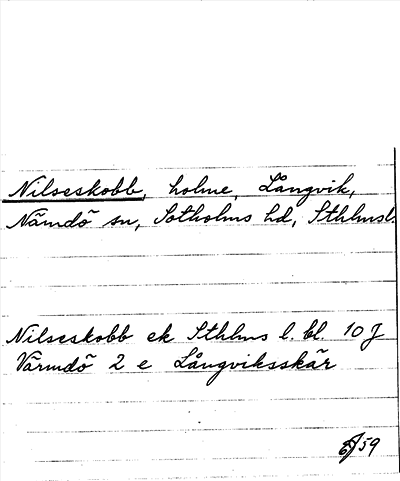 Nilseskobb, holme, Långvik,
Nämdö sn, Sotholms hd, Sthlmsl.
Nilseskobb ek Sthlms l. bl. 10 J
Värmdö 2 e Långviksskär
59